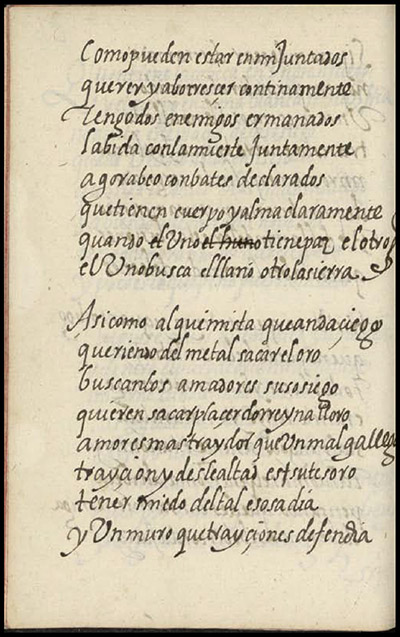 Comopueden estar en mi Juntados
querer y aborrescer continamente
Tengo dos enemigos ermanados
la bida con la muerte Juntamente
agora beo conbates declarados
que tienen cuerpo y alma claramente
quando el Uno el huno tiene paz el otro
el Uno busca el llano otro la sierra

Asi como alquimista que anda çiego
queriendo del metal sacar el oro
buscan los amadores su sosiego
quieren sacar plaçer do rreyna lloro
amor es mas traydor que Un mal gallego
trayçion y deslealtad es su tesoro
tener miedo del tal es osadia
y Un muro que trayçiones defendia